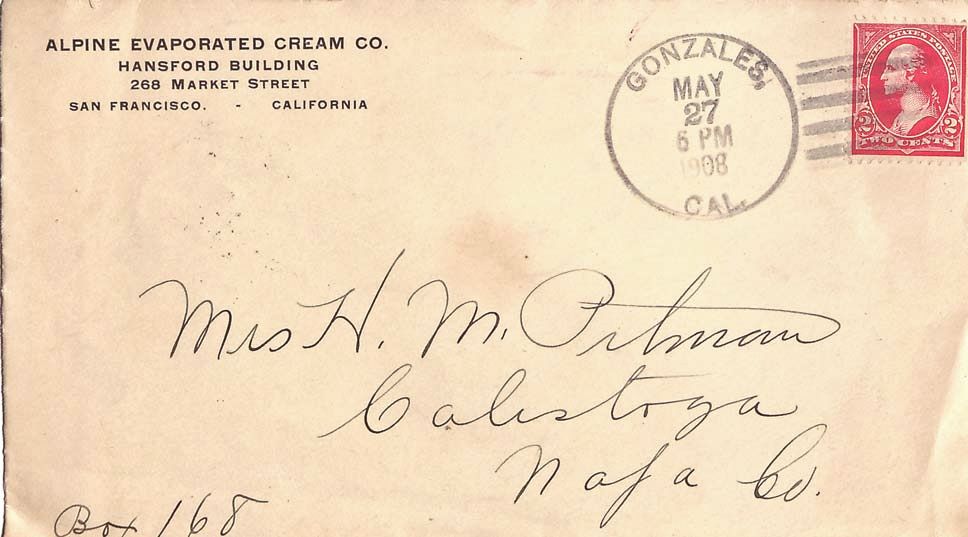 ALPINE EVAPORATED CREAM CO.
HANSFORD BUILDING
268 MARKET STREET
SAN FRANCISCO. - CALIFORNIA
GONZALES,
MAY
27
6 PM
1908
CAL.
UNITED STATES POSTAGE
2 2
TWO CENTS
Mrs H. M. Pitman
Calistoga
Napa Co.
Box 168